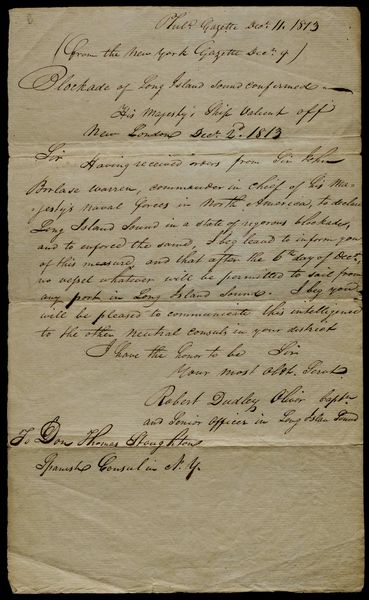 Phila Gazette Decr. 11. 1813
(From the New York Gazette Decr. 9)
Blockade of Long Island Sound confirmed —
His Majesty's Ship Valient off
New London Decr. 2d. 1813
Sir Having received orders from Sir John
Borlase Warren, commander in chief of his Ma-
jesty's Naval Forces in North America, to declare
Long Island Sound in a state of rigorous blockade,
and to enforce the same, I beg leave to inform you
of this measure, and that after the 6th day of Decr.,
no vessel whatever will be permitted to sail from
any port in Long Island Sound. I beg you
will be pleased to communicate this intelligence
to the other neutral consuls in your district
I have the honor to be Sir
Your most obt. Servt.
Robert Dudley Oliver Captn.
and Senior Officer in Long Islan Sound
To Don Thomas Stoughton
Spanish Consul in N.Y.